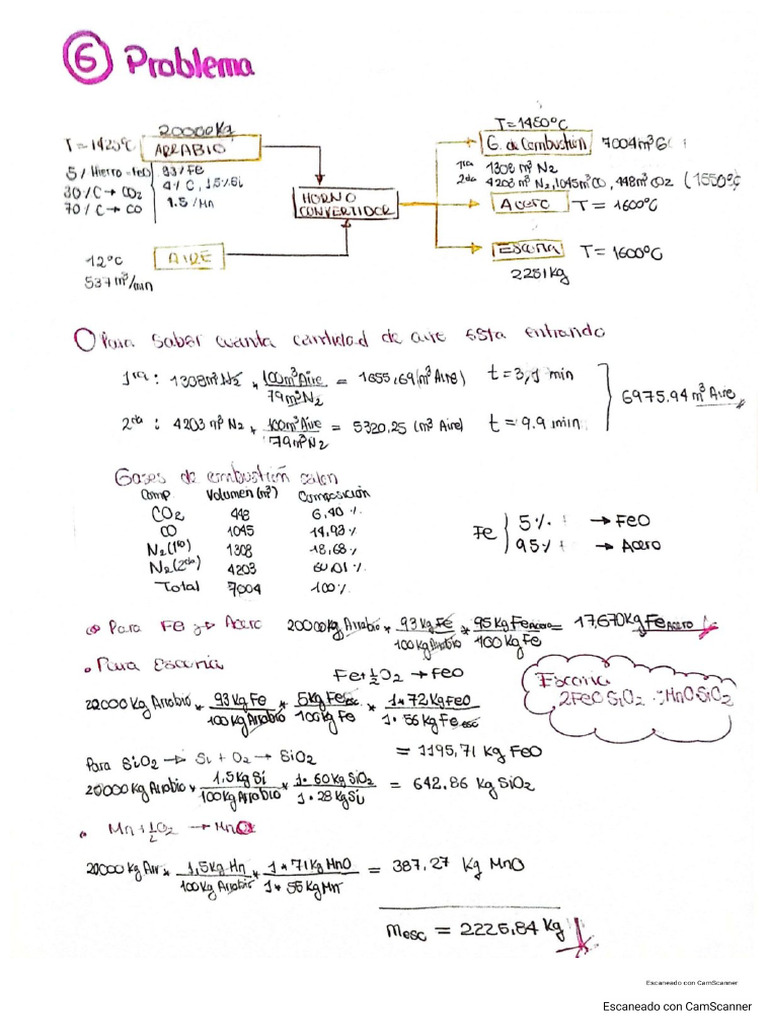 6 Problema
20000Kg
T = 1420°C ARRABIO
5% Hierro → FeO 93% Fe
30% C → CO2 4% C, 1.5% Si
70% C → CO 1.5% Mn
12°C AIRE
537 m³/min
HORNO
CONVERTIDOR
T = 1450°C
G. de Combustión 7004m³G
1ra 1308 m³ N2
2da 4203 m³ N2, 1045m³CO, 448m³CO2 (1550°C
Acero T = 1600°C
Escoria T = 1600°C
2251kg
Para saber cuanta cantidad de aire esta entrando
1ra : 1308m³N2 * 100m³Aire / 79m³N2 = 1655,69(m³Aire) t = 3,1 min
2da : 4203 m³ N2 * 100m³Aire / 79m³N2 = 5320,25 (m³ Aire) t = 9.9 min
6975.94 m³ Aire
Gases de combustión salen
Comp Volumen (m³) Composición
CO2 448 6,40 %
CO 1045 14,93 %
N2(1ra) 1308 18,68 %
N2(2da) 4203 60,01 %
Total 7004 100 %
Fe 5% → FeO
95% → Acero
Para Fe → Acero 20000kg Arrabio * 93 Kg Fe / 100 Kg Arrabio * 95 Kg Fe Acero / 100 Kg Fe = 17,670Kg Fe Acero
Para Escoria
Fe + 1/2 O2 → FeO
20000 Kg Arrabio * 93 Kg Fe / 100 Kg Arrabio * 5Kg Fe esc / 100 Kg Fe * 1*72 Kg FeO / 1*56 Kg Fe esc
= 1195,71 Kg FeO
Escoria
2FeO SiO2 : MnO SiO2
Para SiO2 → Si + O2 → SiO2
20000 Kg Arrabio * 1,5 Kg Si / 100 Kg Arrabio * 1*60 Kg SiO2 / 1*28 Kg Si = 642,86 Kg SiO2
Mn + 1/2 O2 → MnO
20000 Kg Arr * 1,5 Kg Mn / 100 Kg Arrabio * 1*71 Kg MnO / 1*55 Kg Mn = 387,27 Kg MnO
Mesc = 2225,84 Kg
Escaneado con CamScanner
Escaneado con CamScanner